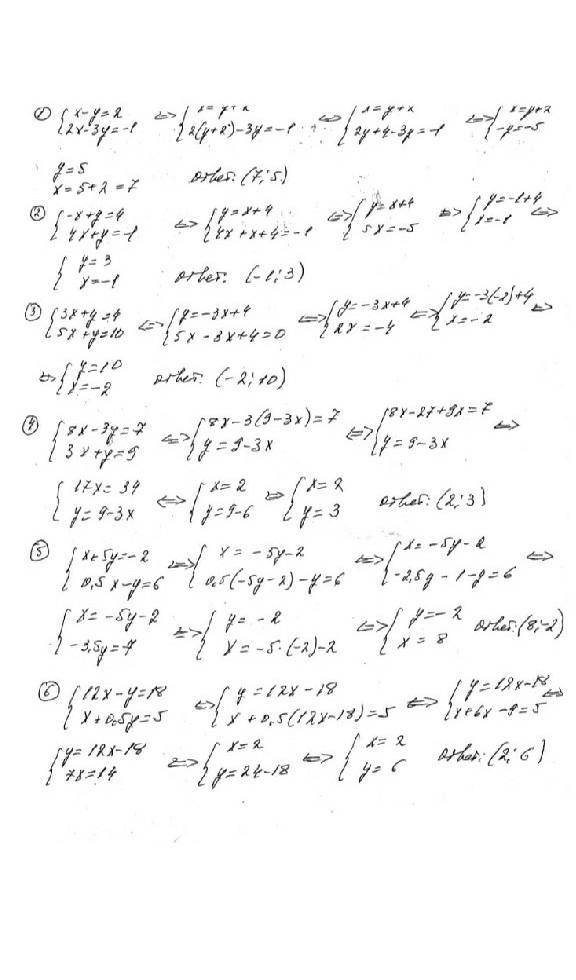 ① {x-y=2 2x-3y=-1 <=> {x=y+2 2(y+2)-3y=-1 <=> {x=y+2 2y+4-3y=-1 <=> {x=y+2 -y=-5
y=5
x=5+2=7 Ответ: (7;5)
② {-x+y=4 4x+y=-1 <=> {y=x+4 4x+x+4=-1 <=> {y=x+4 5x=-5 <=> {y=-1+4 x=-1 <=>
{y=3 x=-1 Ответ: (-1;3)
③ {3x+y=4 5x+y=10 <=> {y=-3x+4 5x-3x+4=0 <=> {y=-3x+4 2x=-4 <=> {y=-3(-2)+4 x=-2 <=>
<=> {y=10 x=-2 Ответ: (-2;10)
④ {8x-3y=7 3x+y=9 <=> {8x-3(9-3x)=7 y=9-3x <=> {8x-27+9x=7 y=9-3x <=>
{17x=34 y=9-3x <=> {x=2 y=9-6 <=> {x=2 y=3 Ответ: (2;3)
⑤ {x+5y=-2 0,5x-y=6 <=> {x=-5y-2 0,5(-5y-2)-y=6 <=> {x=-5y-2 -2,5y-1-y=6 <=>
{x=-5y-2 -3,5y=7 <=> {y=-2 x=-5·(-2)-2 <=> {y=-2 x=8 Ответ: (8;-2)
⑥ {12x-y=18 x+0,5y=5 <=> {y=12x-18 x+0,5(12x-18)=5 <=> {y=12x-18 x+6x-9=5 <=>
{y=12x-18 7x=14 <=> {x=2 y=24-18 <=> {x=2 y=6 Ответ: (2;6)